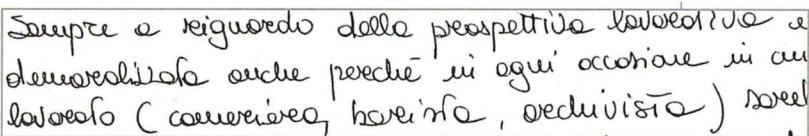 Sempre a reiguardo della prospettiva lavorativa e
demoralizzata anche perché in ogni occasione in cui
lavorato (cameriera, barista, archivista) sarei